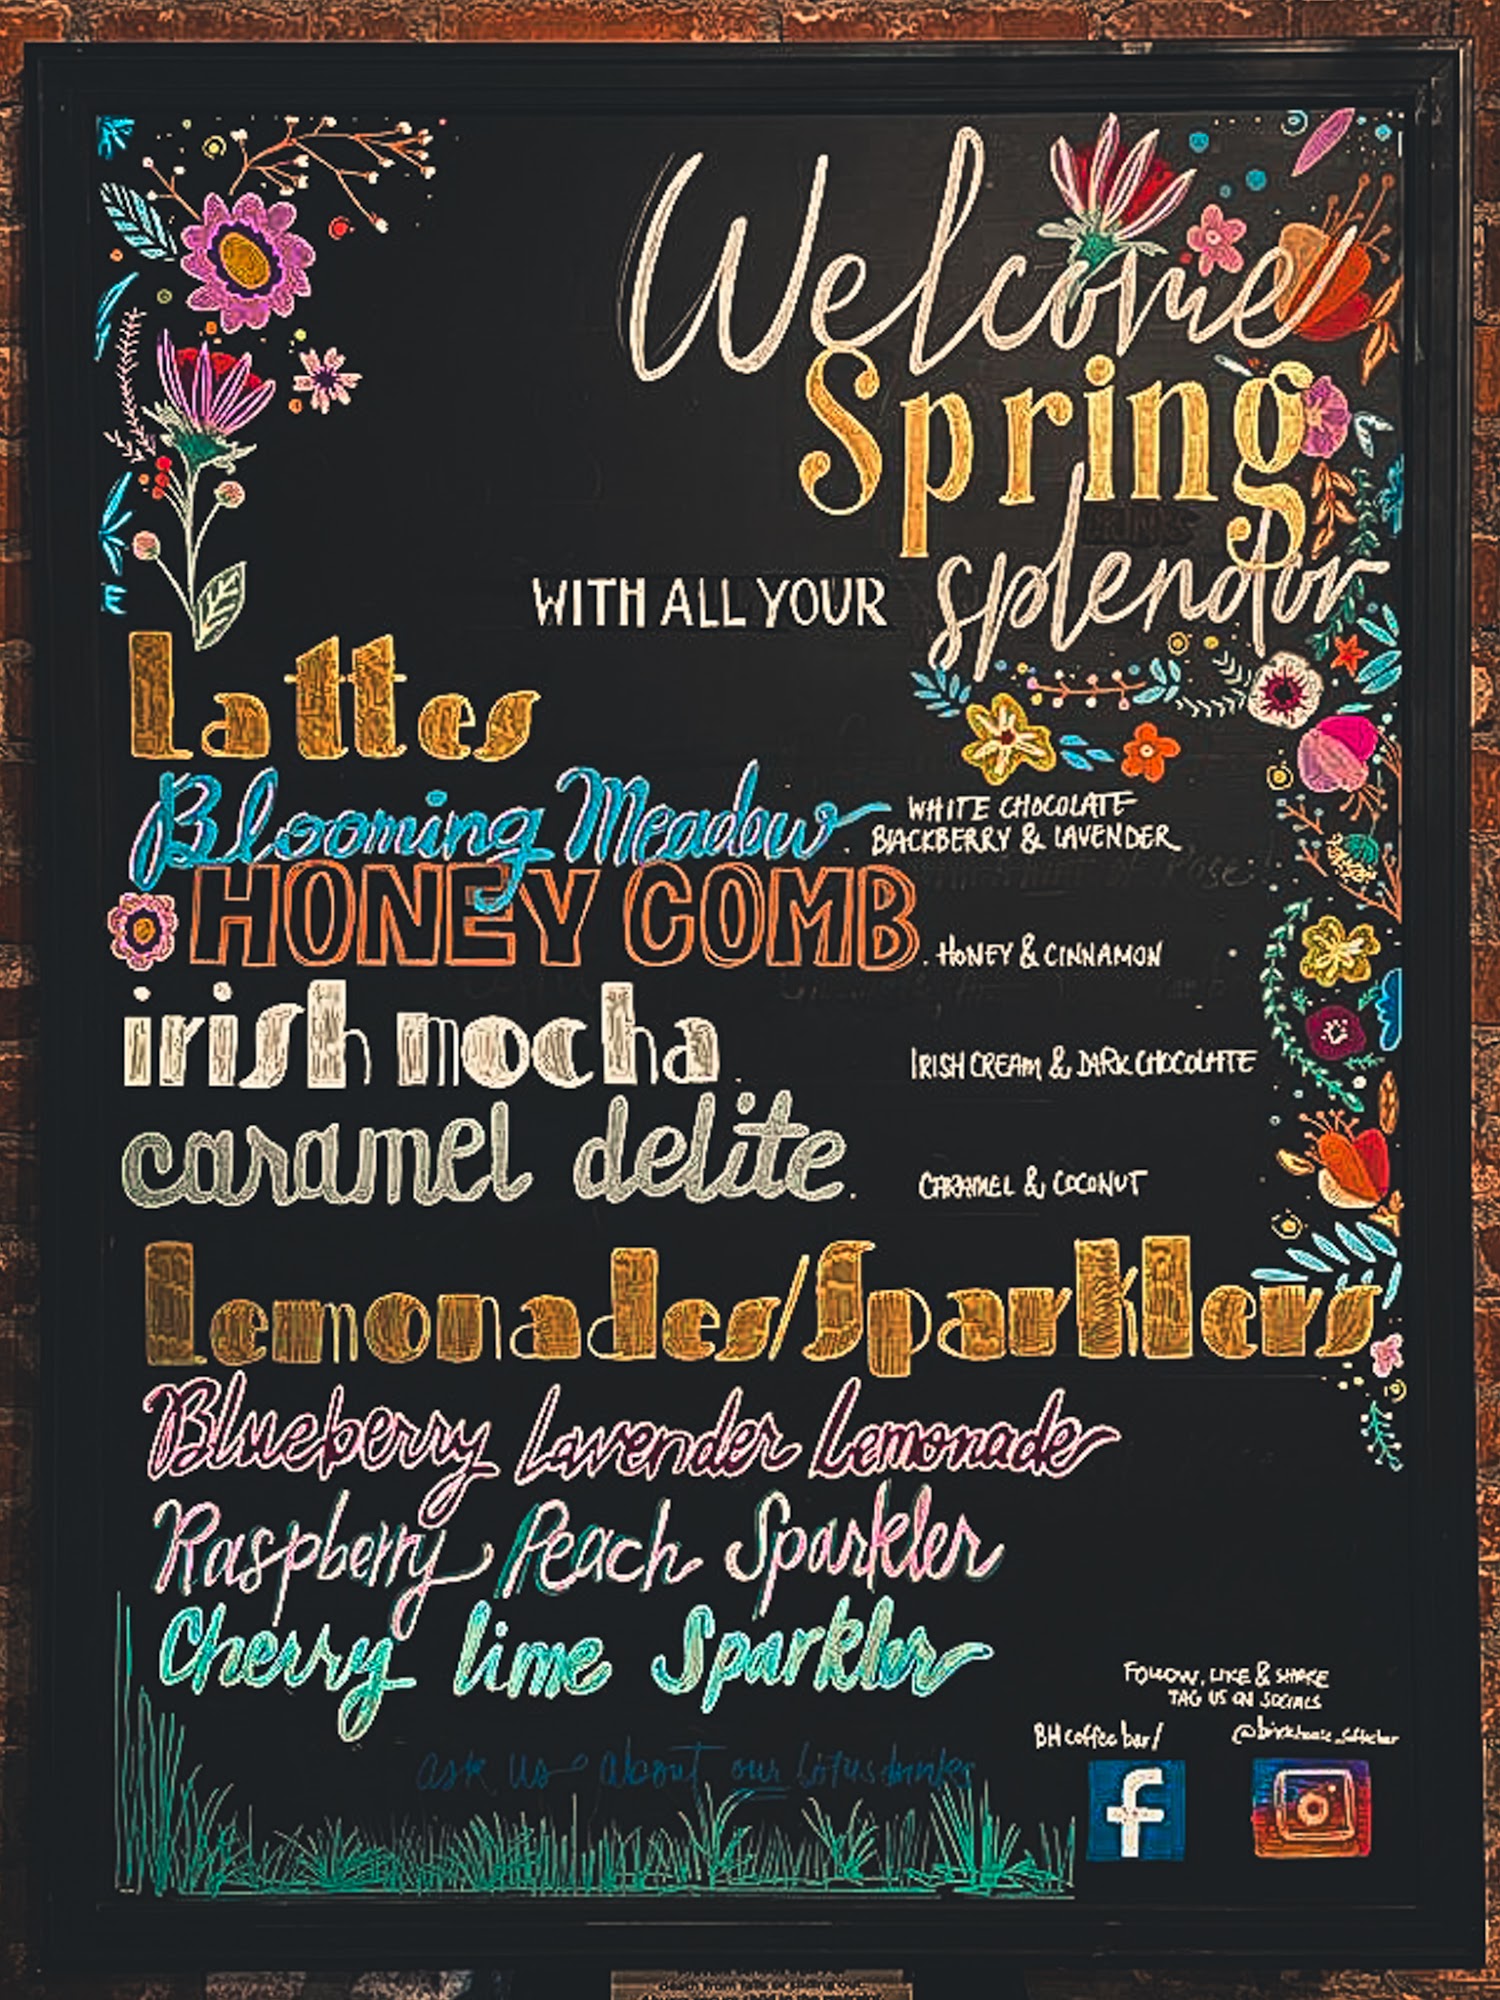 Welcome
Spring
WITH ALL YOUR splendor
Lattes
Blooming Meadow. WHITE CHOCOLATE
BLACKBERRY & LAVENDER
HONEY COMB. HONEY & CINNAMON
irish mocha. IRISH CREAM & DARK CHOCOLATE
caramel delite. CARAMEL & COCONUT
Lemonades/Sparklers
Blueberry Lavender Lemonade
Raspberry Peach Sparkler
Cherry lime Sparkler
FOLLOW, LIKE & SHARE
TAG US ON SOCIALS
BHcoffeebar/
ask us about our lotus drinks
f
death from falls or sliding out